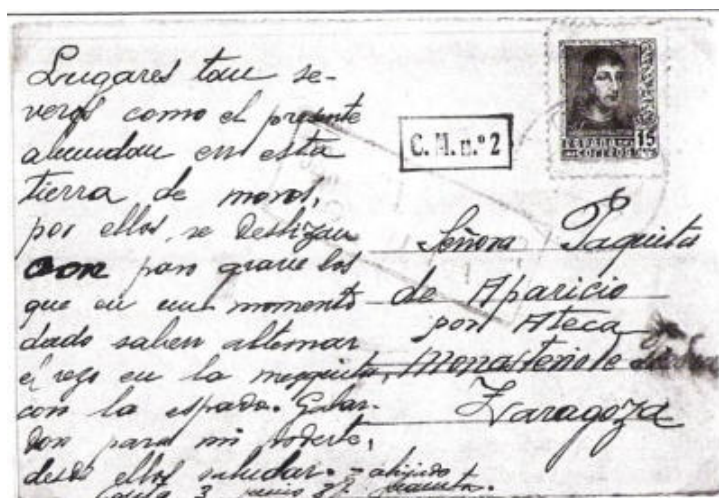 Lugares tan se-
veros como el presente
abundan en esta
tierra de moros,
por ellos se deslizan
con paso grave los
que en un momento
dado saben alternar
el rezo en la mezquita,
con la espada. Galar-
don para mi poderte,
desde ellos saludar. = ahijado
3 junio
C. M. n.º 2
ESPAÑA
CORREOS
15
Señora Paquita
de Aparicio
por Ateca
Monasterio de
Zaragoza